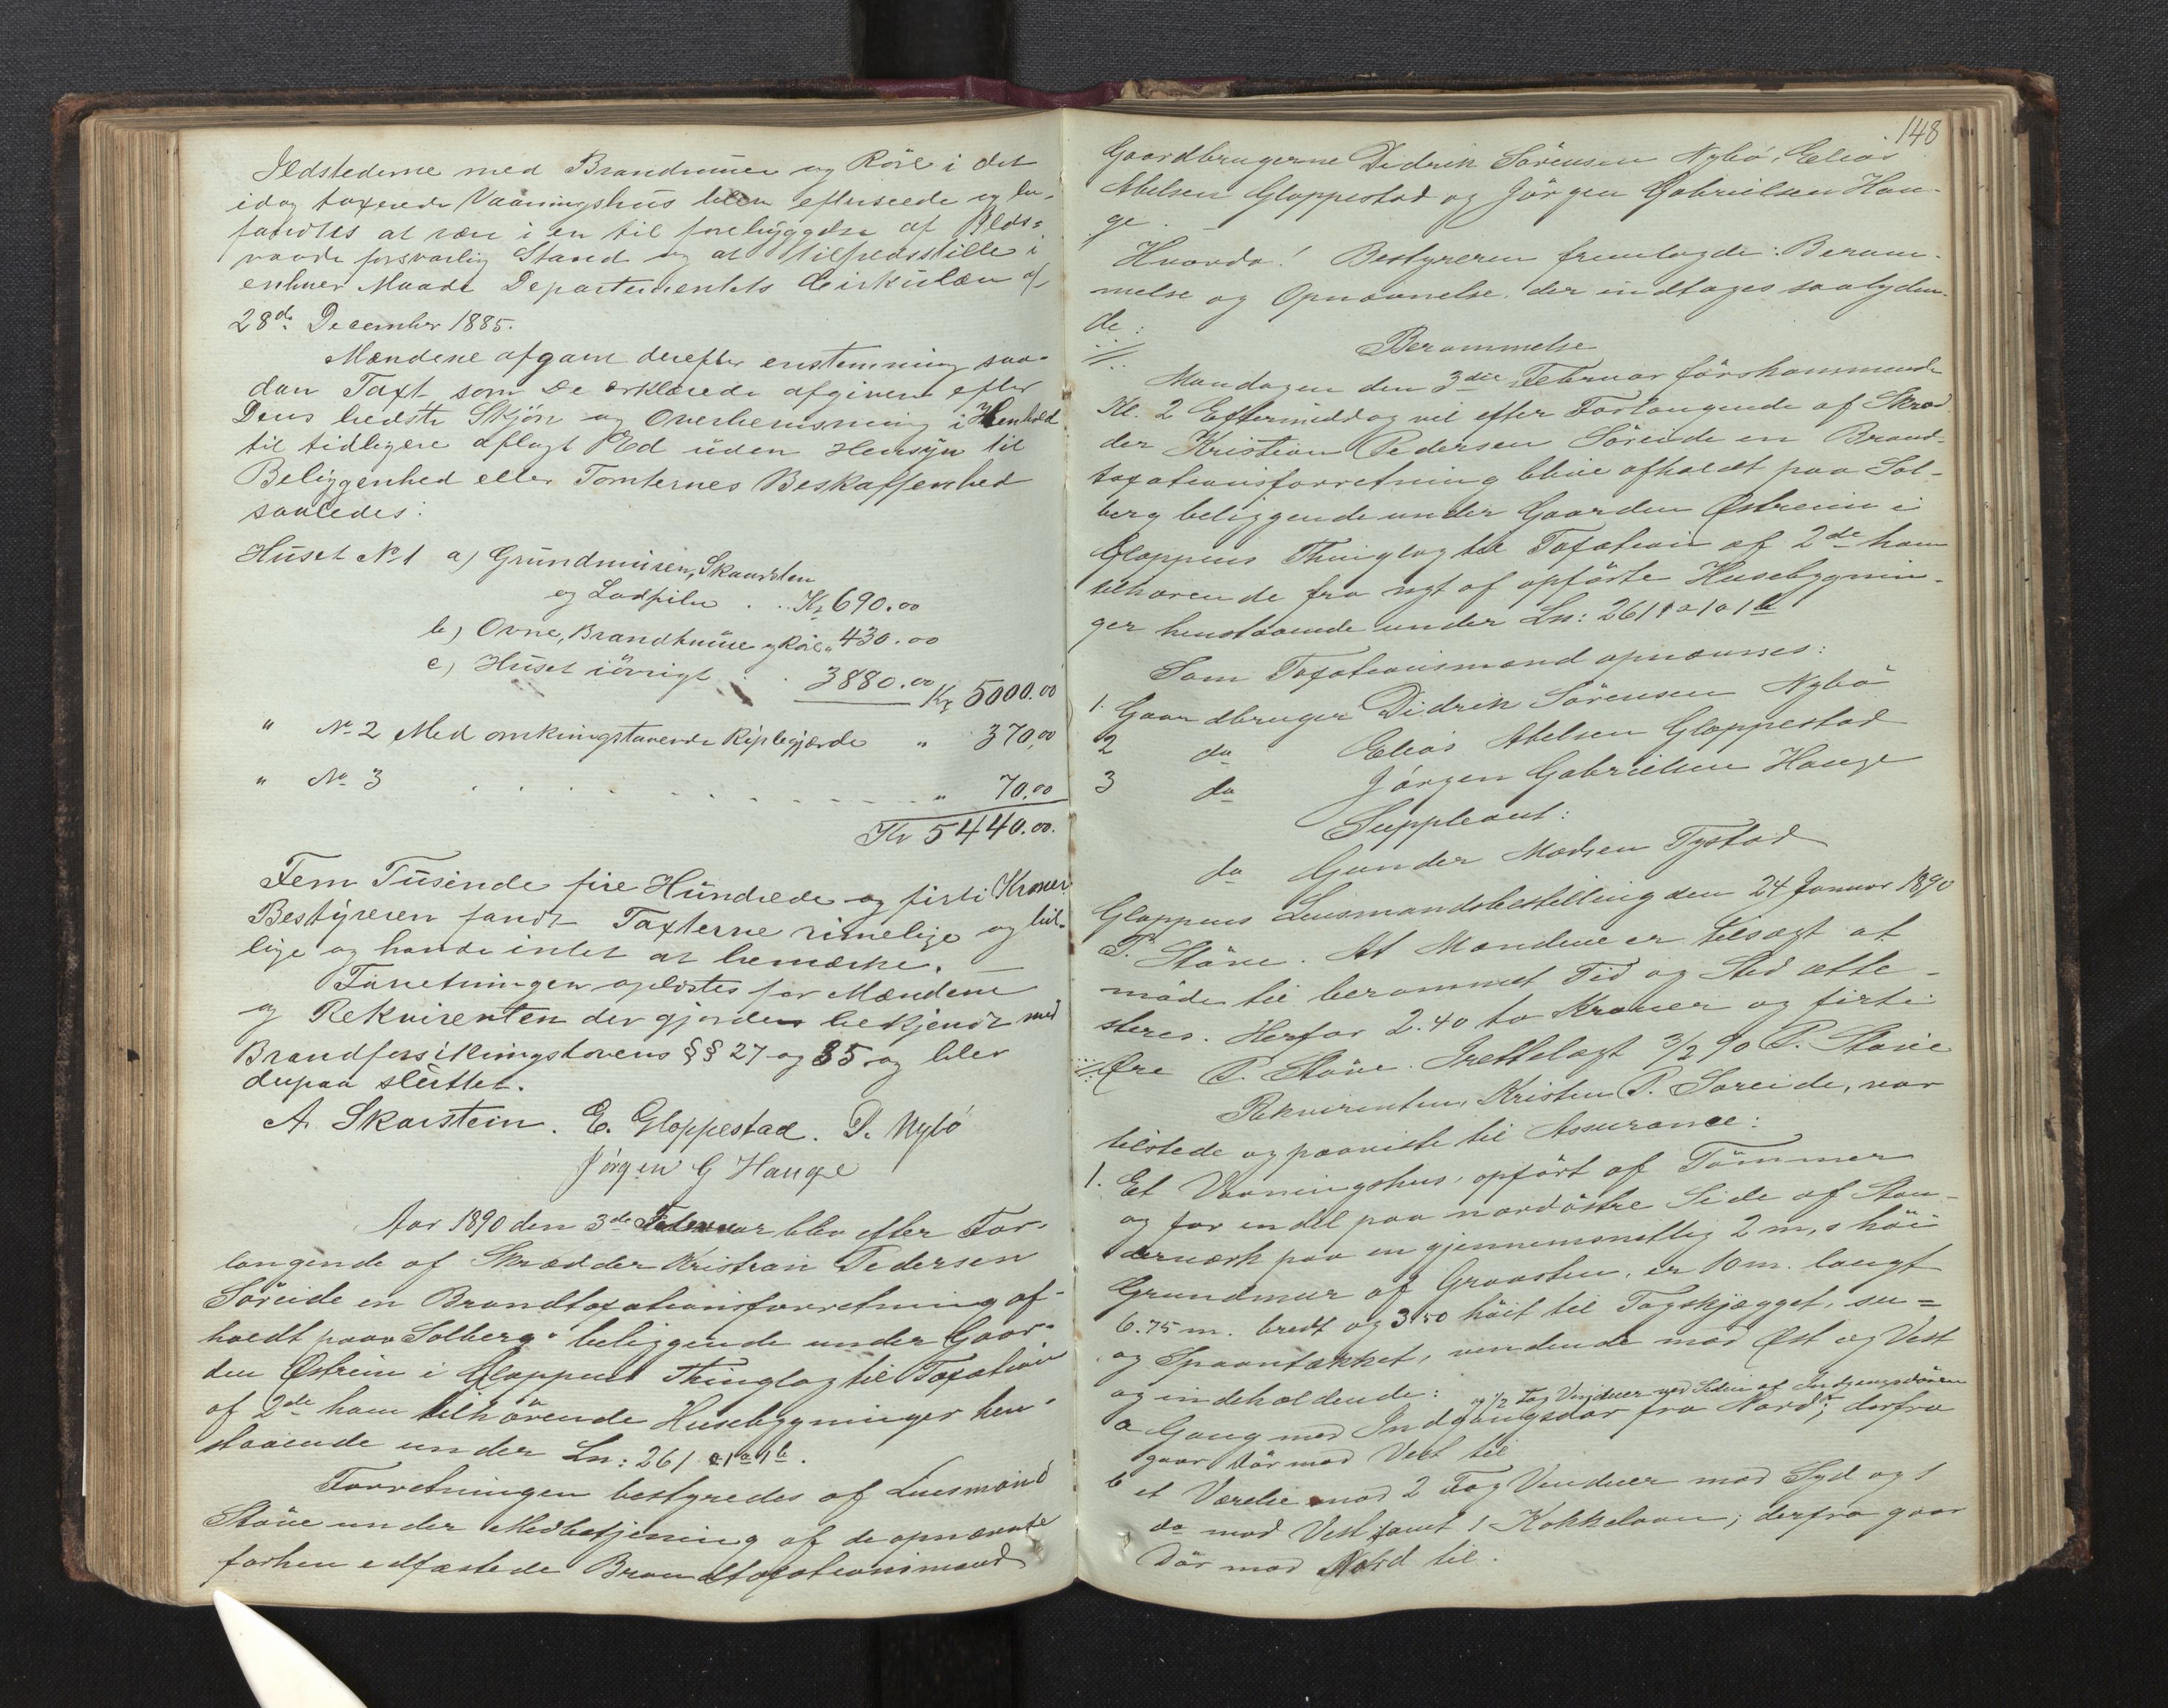 Ildstederne med Brandmure og Rør i det
idag taxerede Vaaningshus blev efterseede og be-
fandtes at være i en til forebyggelse af Ilds-
vaade forsvarlig Stand og at tilfredsstille i
enhver Maade Departementets Cirkulær af
28de December 1885.
Mændene afgave derefter enstemmig saa-
dan Taxt som De erklærede afgiven efter
Deres bedste Skjøn og Overbevisning i Henhold
til tidligere aflagt Ed uden Hensyn til
Beliggenhed eller Tomternes Beskaffenhed
saaledes:
Huset No 1 a) Grundmuren, Skaarsten
og Ladpiln . . Kr 690.00
b) Ovne, Brandmure og Rör „ 430.00
c) Huset iövrigt . . 3880.00 Kr 5000.00
" No 2 Med omkringstaaende Ripsgjærde " 370,00
" No 3 . . . . . . . . . . " 70.00
Kr 5440.00.
Fem Tusinde fire Hundrede og firti Kroner
Bestyreren fandt Taxterne rimelige og bil-
lige og havde intet at bemærke.
Forretningen oplæstes for Mændene
og Rekvirenten der gjordes bekjendt med
Brandforsikringslovens §§ 27 og 35 og blev
derpaa sluttet.
A. Skarstein. E. Gloppestad. D. Nybö
Jörgen G Hauge
Aar 1890 den 3de Februar blev efter For-
langende af Skrædder Kristian Pedersen
Söreide en Brandtaxationsforretning af-
holdt paa „Solberg" beliggende under Gaar-
den Østreim i Gloppens Thinglag til Taxation
af 2de ham tilhörende Husebygninger hen-
staaende under Ln: 261 a 1 a 1 b.
Forretningen bestyredes af Lensmand
Støve under Medbetjening af de opnævnte
forhen edfæstede Brandtaxationsmænd
148
Gaardbrugerne Didrik Sörensen Nybö, Elias
Abelsen Gloppestad og Jörgen Gabrielsen Hau-
ge.
Hvorda! Bestyreren fremlagde: Beram-
melse og Opnævnelse, der indtages saalyden-
de:
Berammelse
Mandagen den 3die Februar förstkommende
Kl. 2 Eftermiddag vil efter Forlangende af Skræd
der Kristian Pedersen Söreide en Brand-
taxationsforretning blive afholdt paa Sol-
berg beliggende under Gaarden Østreim i
Gloppens Thinglag til Taxation af 2de ham
tilhörende fra nyt af opförte Husebygnin-
ger henstaaende under Ln: 261 1 a 1 a 1 b
Som Taxationsmænd opnævnes:
1. Gaardbruger Didrik Sörensen Nybö
2 do Elias Abelsen Gloppestad
3 do Jörgen Gabrielsen Hauge
Suppleant:
do Gunder Madsen Tystad
Gloppens Lensmandsbestilling den 24 Januar 1890
P. Støve. At Mændene er tilsagt at
möde til berammet Tid og Sted atte-
steres. Herfor 2.40 to Kroner og firti
Øre P. Støve. Irettelagt 3/2 90 P. Støve
Rekvirenten, Kristen P. Søreide, var
tilstede og paaviste til Assurance:
1. Et Vaaningshus, opfört af Tömmer
og for endel paa nordöstre Side af Stan-
derværk paa en gjennemsnitlig 2 m, s höi
Grundmur af Graasten, er 10 m. langt
6.75 m. bredt og 3.50 höit til Tagskjægget, su=
og Spaantækket, vendende mod Øst og Vest
og indeholdende: og 1/2 Fag Vinduer ved Siden af Indgangsdören
a Gang med Indgangsdör fra Nord; derfra
gaar Dör mod Vest til
b et Værelse med 2 Fag Vinduer mod Syd og 1
do mod Vest samt 1 Kokkelovn; derfra gaar
Dör mod Nord til.